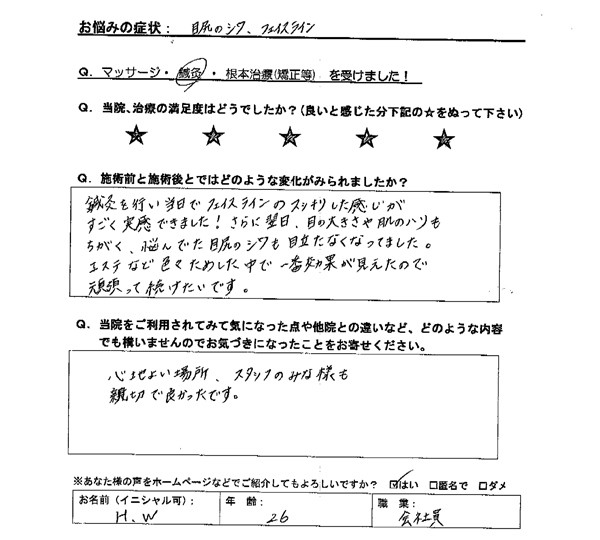 お悩みの症状： 目尻のシワ、フェイスライン
Q．マッサージ・鍼灸・根本治療(矯正等) を受けました！
Q．当院、治療の満足度はどうでしたか？(良いと感じた分下記の☆をぬって下さい)
★ ★ ★ ★ ★
Q．施術前と施術後とではどのような変化がみられましたか？
鍼灸を行い当日でフェイスラインのスッキリした感じが
すごく実感できました！さらに翌日、目の大きさや肌のハリも
ちがく、悩んでた目尻のシワも目立たなくなってました。
エステなど色々ためした中で一番効果が見えたので
頑張って続けたいです。
Q．当院をご利用されてみて気になった点や他院との違いなど、どのような内容
でも構いませんのでお気づきになったことをお寄せください。
心地よい場所、スタッフのみな様も
親切で良かったです。
※あなた様の声をホームページなどでご紹介してもよろしいですか？ ☑はい □匿名で □ダメ
お名前（イニシャル可）： 年 齢： 職 業：
H.W 26 会社員